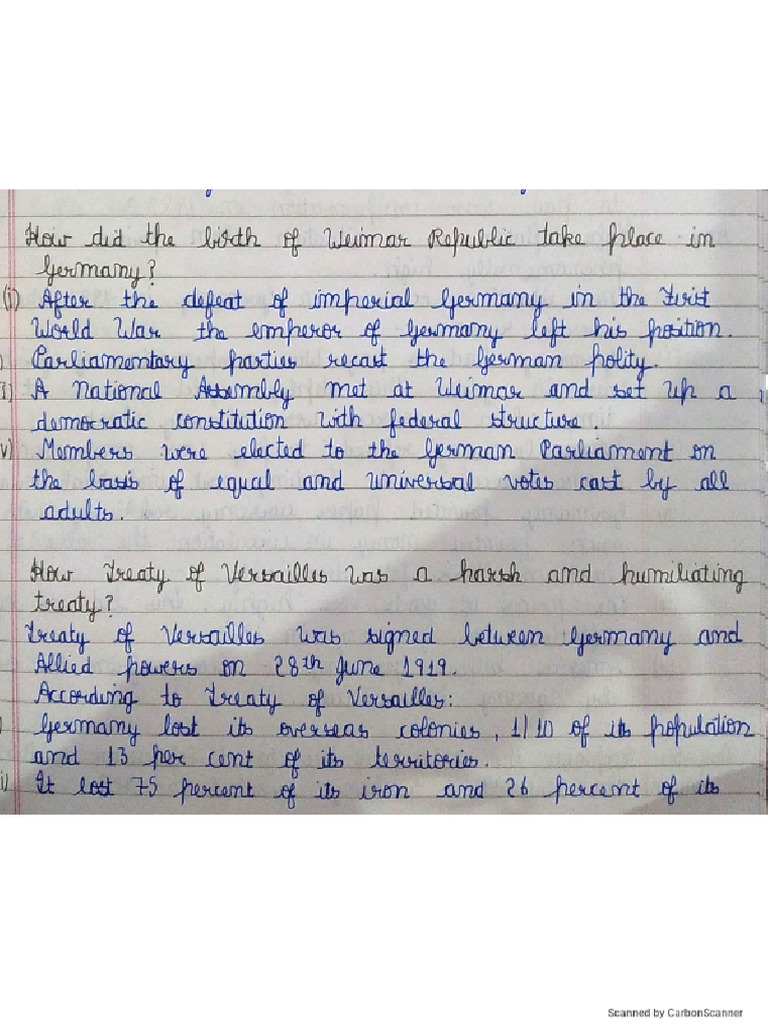 How did the birth of Weimar Republic take place in
Germany?
(i) After the defeat of imperial Germany in the First
World War the emperor of Germany left his position.
) Parliamentary parties recast the German polity.
i) A National Assembly met at Weimar and set up a
democratic constitution with federal structure.
v) Members were elected to the German Parliament on
the basis of equal and universal votes cast by all
adults.
How Treaty of Versailles was a harsh and humiliating
treaty?
Treaty of Versailles was signed between Germany and
Allied powers on 28th June 1919.
According to Treaty of Versailles:
) Germany lost its overseas colonies, 1/10 of its population
and 13 per cent of its territories.
i) It lost 75 percent of its iron and 26 percent of its
Scanned by CarbonScanner